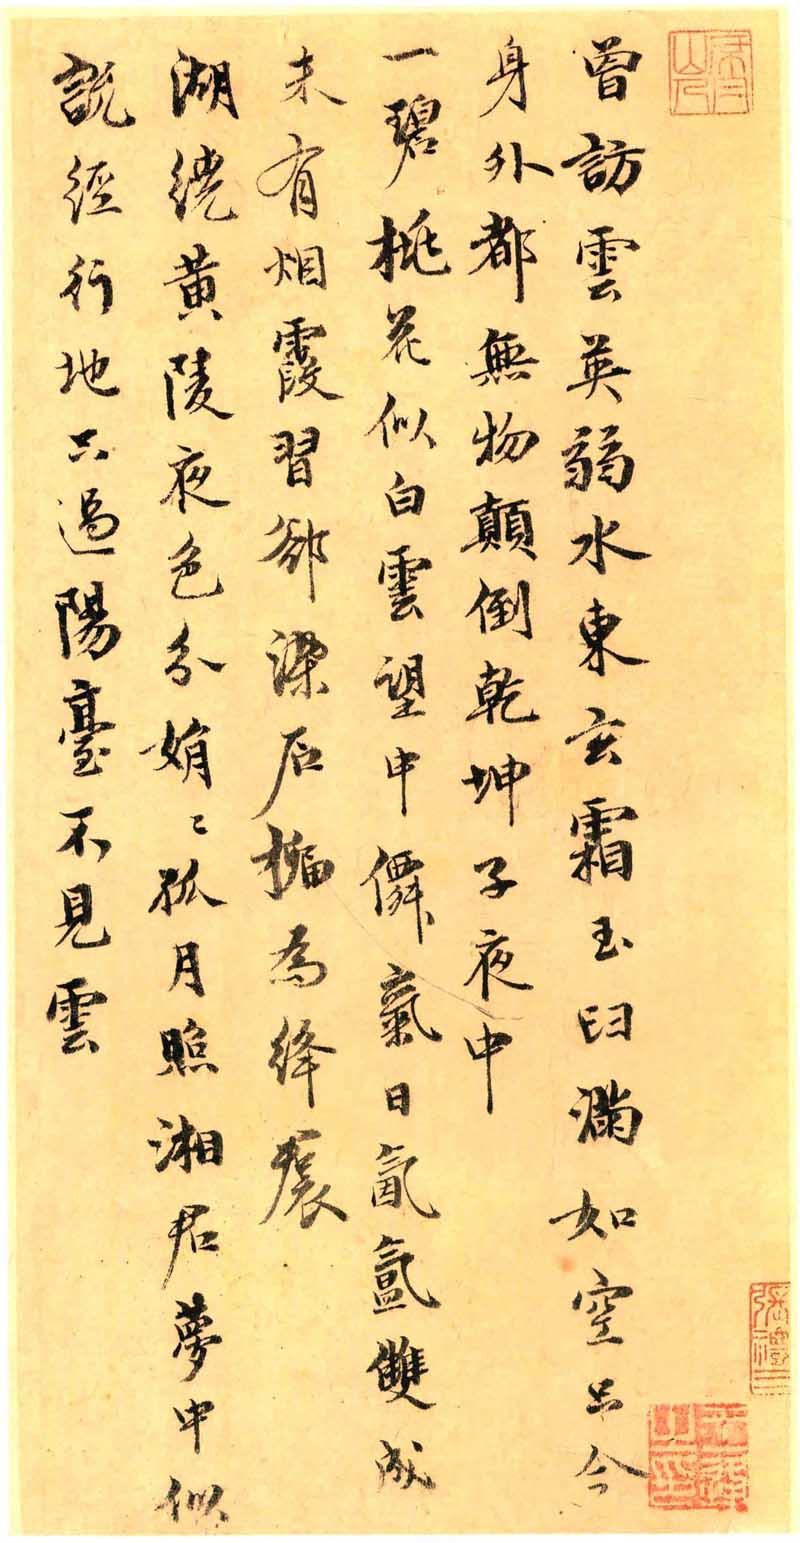 曾訪雲英弱水東玄霜玉臼滿如空只今
身外都無物顛倒乾坤子夜中
一碧桃花似白雲望中僊氣日氤氳雙成
未有烟霞習卻染石榴為絳裠
湖繞黃陵夜色分娟〻孤月照湘君夢中似
說經行地只過陽臺不見雲